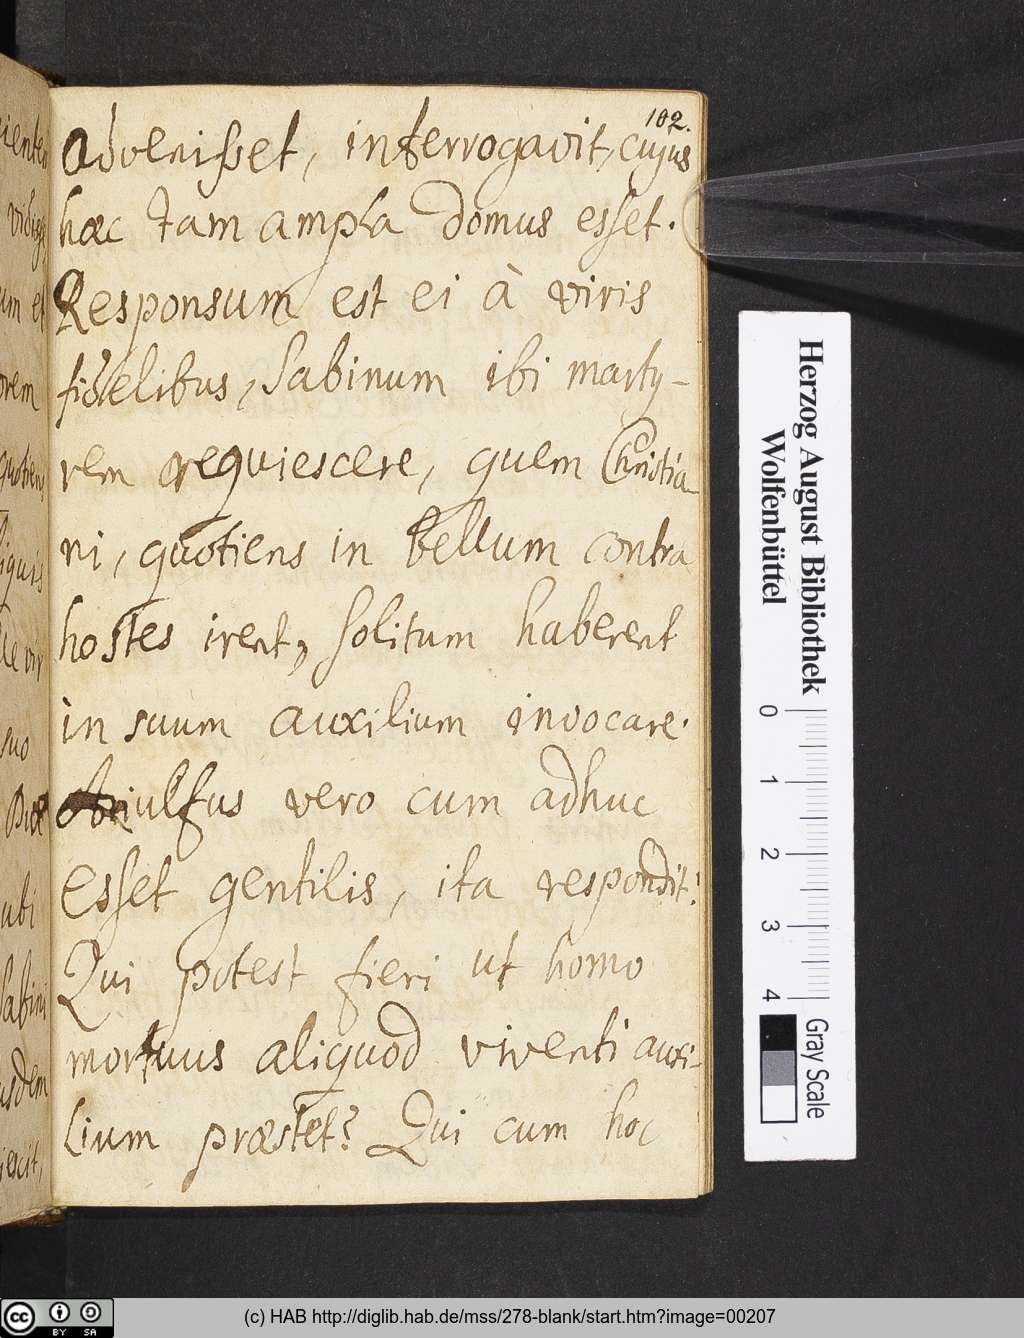 102.
advenisset, interrogavit, cujus
hæc tam ampla domus esset.
Responsum est ei à viris
fidelibus, Sabinum ibi marty-
rem requiescere, quem Christia-
ni, quotiens in bellum contra
hostes irent, solitum haberent
in suum auxilium invocare.
Ariulfus vero cum adhuc
esset gentilis, ita respondit:
Qui potest fieri ut homo
mortuus aliquod viventi auxi-
lium præstet? Qui cum hoc
Herzog August Bibliothek
Wolfenbüttel
0 1 2 3 4
Gray Scale
cc BY SA
(c) HAB http://diglib.hab.de/mss/278-blank/start.htm?image=00207